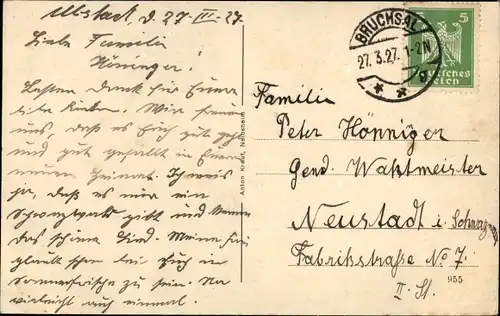 Ubstadt d. 27-III-27.
Liebe Familie
Hönninger!
Besten Dank für Eure
liebe Karte. Wir freuen
uns, daß es Euch gut geht
und gut gefällt in Eurer
neuen Heimat. Ich weis
ja, daß es nur ein
Schwarzwald gibt und kenne
das schöne Lied. Meine Frau
glaubt schon bei Euch in
Sommerfrische zu sein. Na
vieleicht auch einmal.
Anton Kraus, Neibsheim
BRUCHSAL
27.3.27. 1-2N
* *
5
Deutsches
Reich
Familie
Peter Hönniger
Gend. Wachtmeister
Neustadt i. Schwarz
Fabrikstraße No 7.
II. St.
955